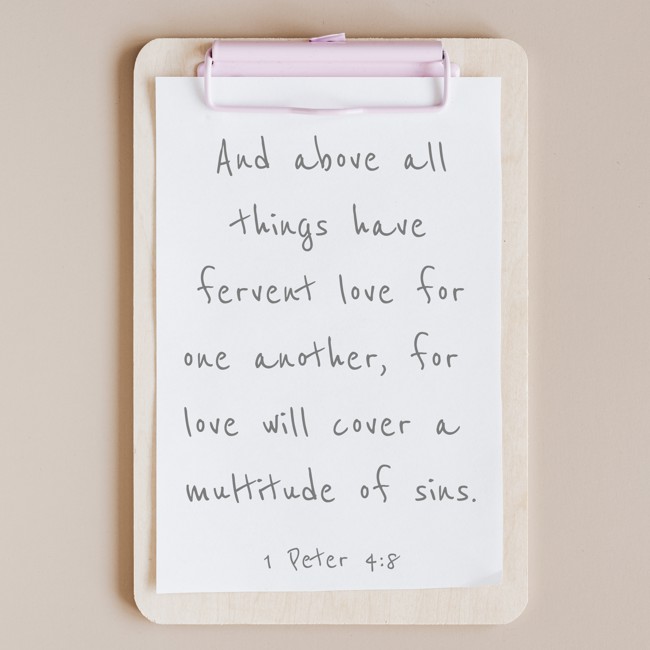 And above all
things have
fervent love for
one another, for
love will cover a
multitude of sins.
1 Peter 4:8